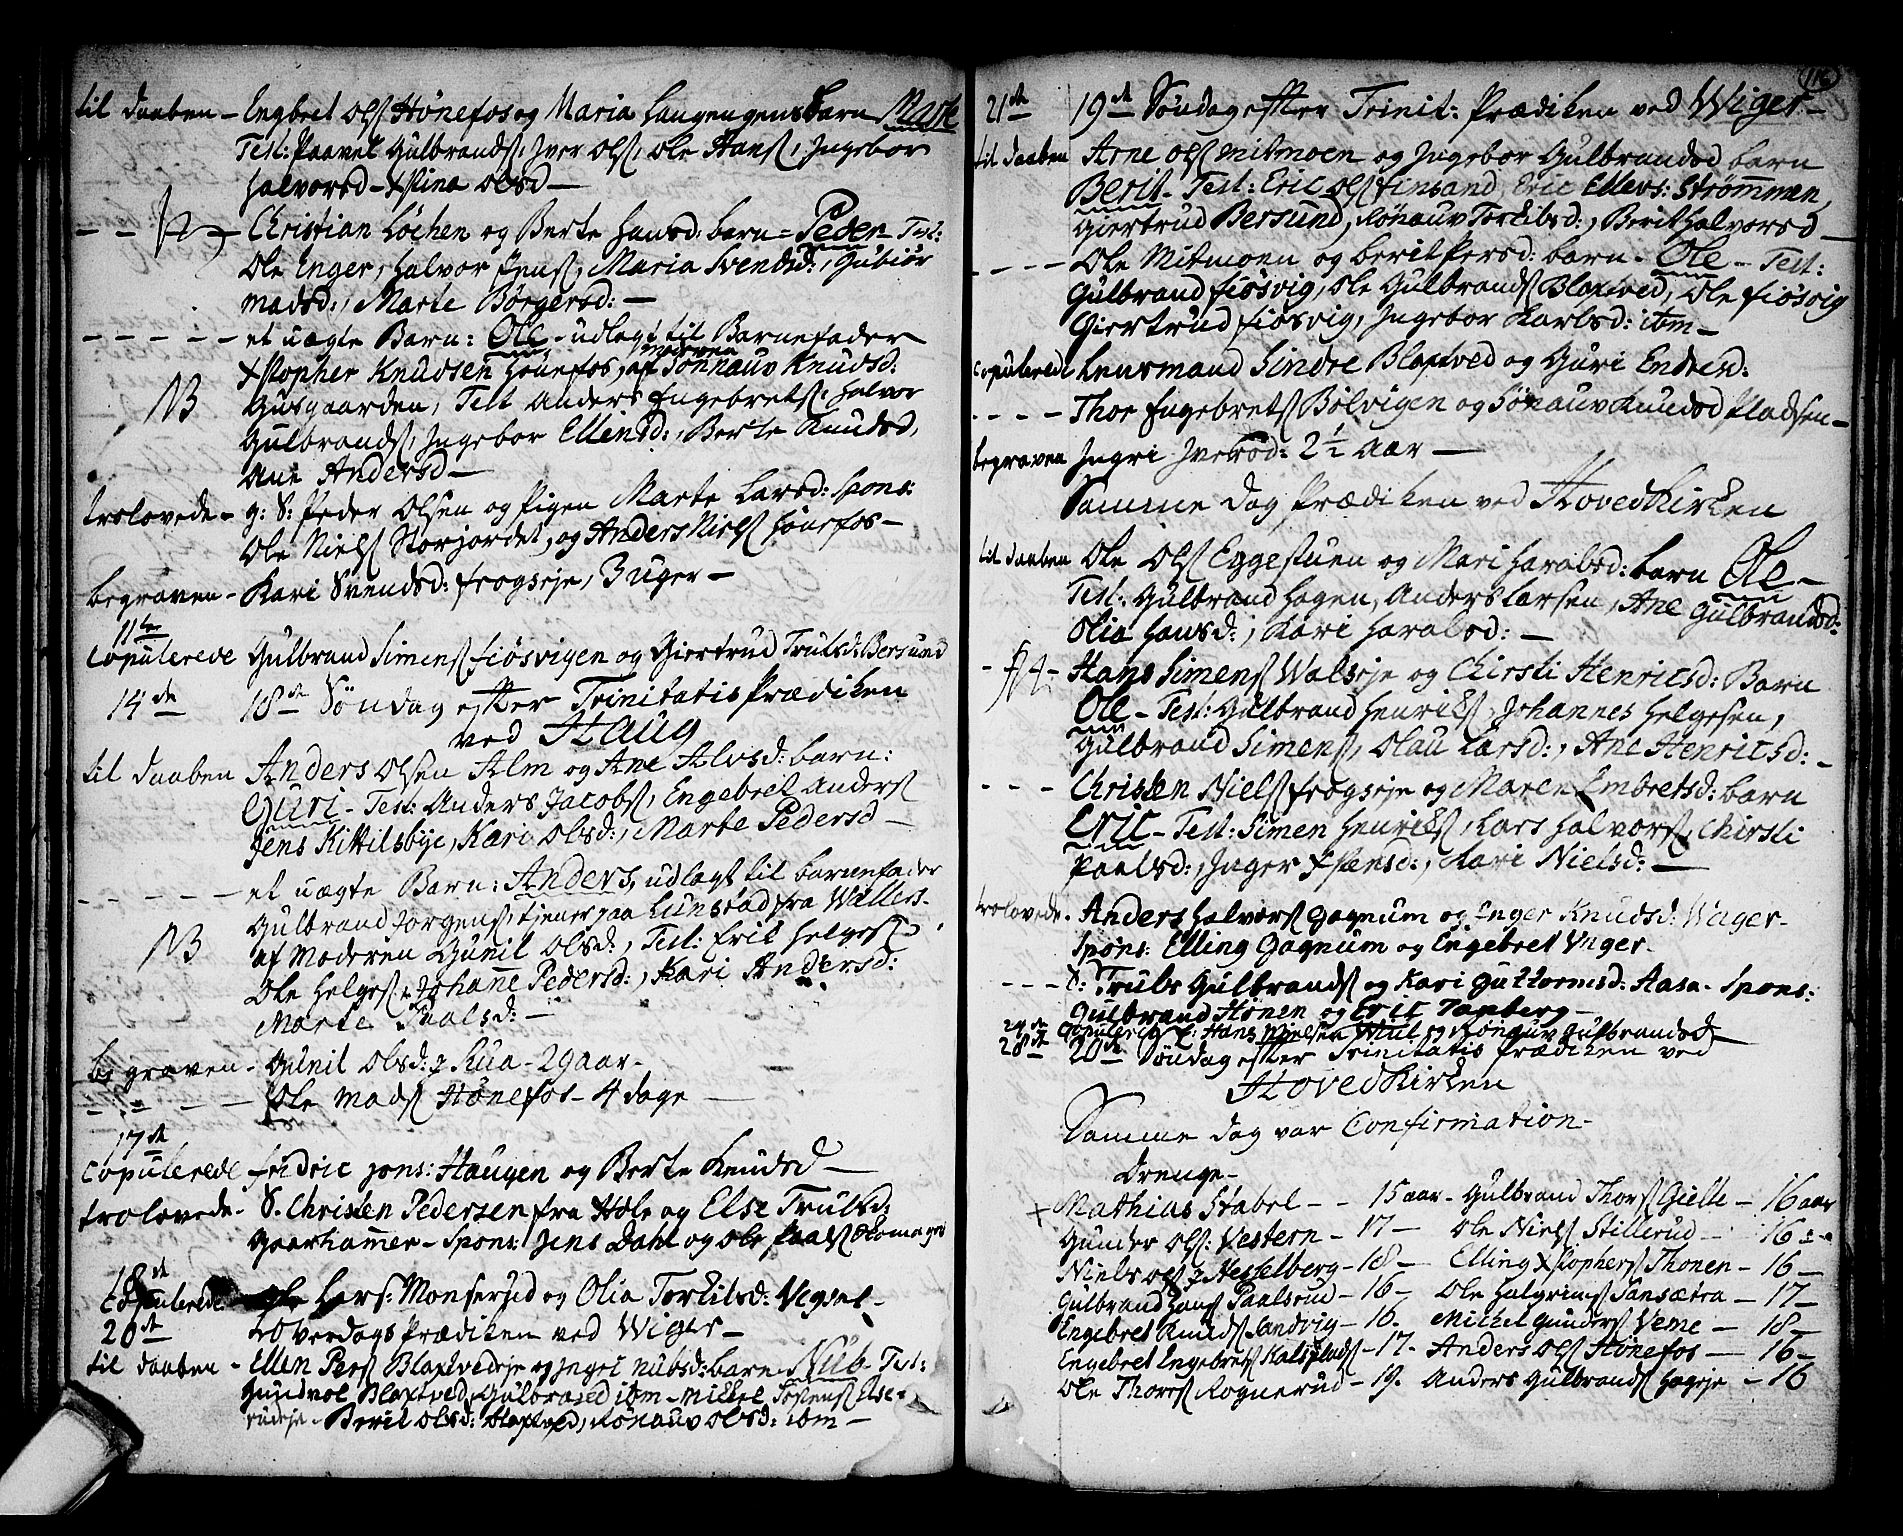 til daaben - Engbret Ols Hønefos og Maria Haugengens barn Marte
Test: Paavel Gulbrands, Iver Ols, Ole Hans, Ingebor
halvorsd - Xstina olsd -
Christian Løchen og Berte Hansd: barn = Peder Test:
Ole Enger, Halvor Jens, Maria Svendsd:, Gubiør
madsd:, Marte Børgersd: -
- - - - - et uægte Barn: Ole - udlagt til Barnefader
Xstopher Knudsen Hønefos, af moderen Rønnauv Knudsd:
NB Gusgaarden, Test Anders Engebrets, Halvor
Gulbrands, Ingebor Ellensd:, Berte Knudsd,
Ane Andersd -
trolovede - g: S: Peder Olsen og Pigen Marte Larsd: Spons:
Ole Niels Storjordet, og Anders Niels Hønefos -
begraven - Kari Svendsd: frogseje, 3 uger -
11te
Copulerede Gulbrand Simens fiøsvigen og Giertrud Trulsd: Bersund
14de 18de Søndag efter Trinitatis Prædiken
ved Haug
til daaben Anders Olsen Alm og Ane Alvsd: barn:
Guri - Test: Anders Jacobs, Engebret Anders
Jens Kittilsbye, Kari Olsd:, Marte Pedersd -
- - - - - et uægte Barn: Anders, udlagt til barnefader
Gulbrand Jorgens, tjener paa Lunstad fra Wallers.
NB af Moderen Gunil Olsd:, Test: Eric Helges
Ole Helges, Johanne Pedersd:, Kari Andersd:
Marte Paalsd: -
begraven - Gunil Olsd: Hua - 29 aar -
- - - - Ole Mads Hønefos - 4 dage
17de
Copulerede fridric Jons: Haugen og Berte Knudsd -
trolovede - S. Christen Pedersen fra Hole og Else Trulsd:
Gaarhammer - Spons: Jens Dahl og Ole Paals
18de
Copulerede Ole Lars: Monserud og Olia Torkilsd: Vegsel -
20de Loverdags Prædiken ved Wiger -
til daaben - Ellen Pers Blaxtvedeje og Ingri Nubsd: barn Nub - Test:
Gundvol Blaxtved, Gulbrand ibm - Mikkel Tostens Else-
rudeje - Berit Olsd: Blaxtved, Rønauv Olsd: ibm -
116
21de 19de Søndag efter Trinit: Prædiken ved Wiger -
til daaben Arne Ols Mitmoen og Ingebor Gulbrandsd barn
Berit - Test: Eric Ols finsand, Eric Ellevs: Strømmen,
Giertrud Bersund, Rønauv Torkilsd:, Berit Halvorsd -
- - - - Ole Mitmoen og Berit Persd: barn - Ole - Test:
Gulbrand fiøsvig, Ole Gulbrands Blaxtved, Ole fiøsvig
Giertrud fiøsvig, Ingebor Karlsd: ibm -
Copulerede Lensmand Sindre Blaxtved og Guri Endresd:
- - - - Thor Engebrets Bølvigen og Rønauv Knudsd Pladsen -
begraven Ingri Iversd: 2 1/2 Aar -
Samme Dag Prædiken ved Hovedkirken
til daaben Ole Ols Eggestuen og Mari Haralsd: barn Ole -
Test: Gulbrand Hagen, Anders Larsen, Ane Gulbrandsd:
Olia Hansd:, Kari Haralsd: -
Hans Simens Walseje og Chirsti Henricsd: Barn
Ole - Test: Gulbrand Henriks, Johannes Helgesen,
Gulbrand Simens, Olau Larsd:, Ane Henricsd: -
- - - Christen Niels frogseje og Maren Embretsd: barn
Eric - Test: Simen Henriks, Lars Halvors, Chirsti
Paalsd:, Inger Xstensd:, Kari Nielsd: -
trolovede - Anders Halvors Gagnum og Inger Knudsd: Wager -
Spons: Elling Gagnum og Engebret Unger -
- - - S: Truls Gulbrands og Kari Guttormsd: Aasa - Spons:
Gulbrand Hønen og Eric Tanberg -
24de Copulerede S: Hans Nielsen og Rønauv Gulbrandsd -
28de 20de Søndag efter Trinitatis Prædiken ved
Hovedkirken
Samme Dag var Confirmation -
Drenge -
+ Mathias Stabel - - 15 aar - Gulbrand Thors Gielle - 16 aar
Gunder Ols: Vestern - 17 - Ole Niels Stillerud - 16 -
Niels Ols Hesselberg - 18 - Elling Xstophers Thonen - 16 -
Gulbrand Hans Paalsrud - 16 - Ole Halgrims Sansætra - 17 -
Engebret Knuds Sandvig - 16. Michel Gunders Veme - 18 -
Engebret Engebrets Kalsplads - 17. Anders Ols Hønefos - 16 -
Ole Thores Rognerud - 19. Anders Gulbrands Hageje - 16